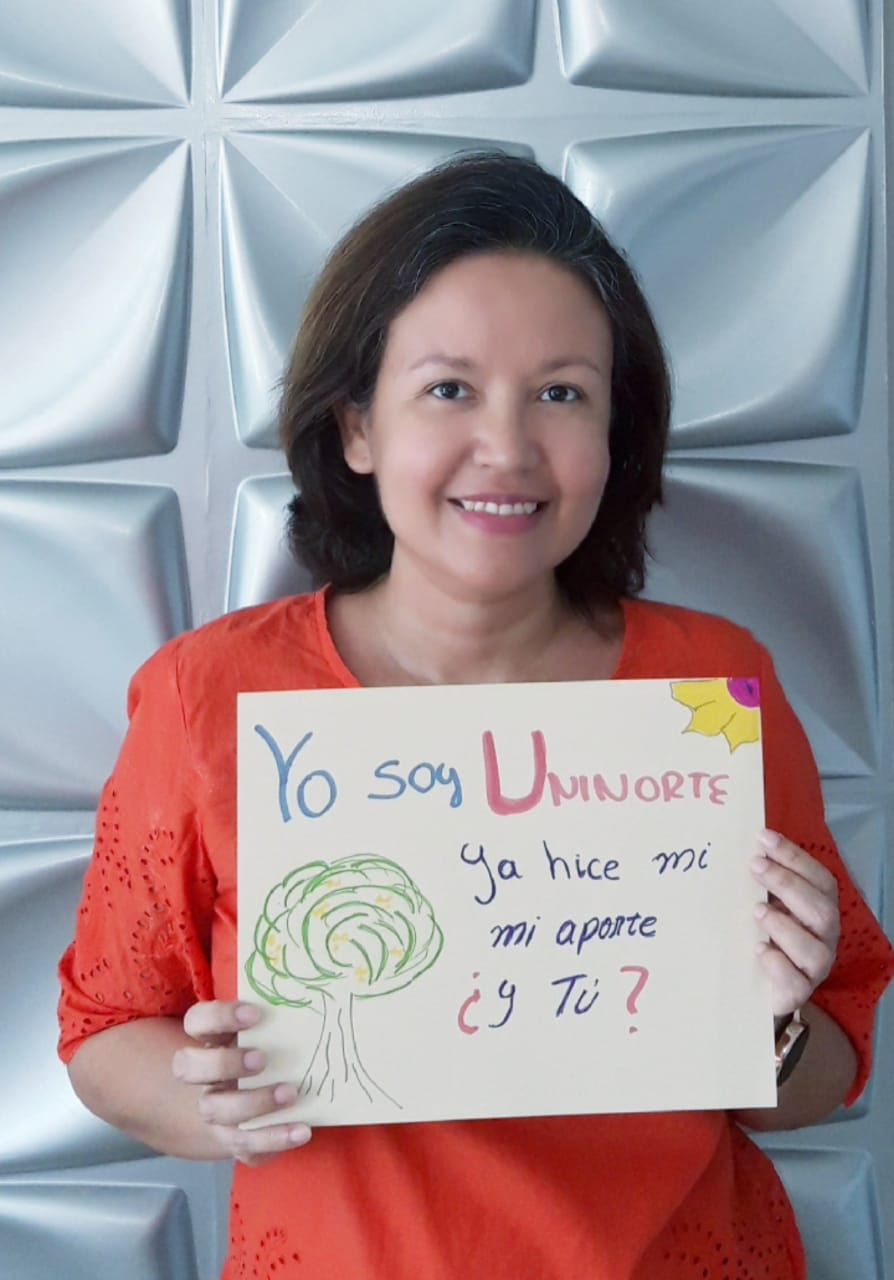 Yo soy UNINORTE
Ya hice mi
mi aporte
¿y Tú?